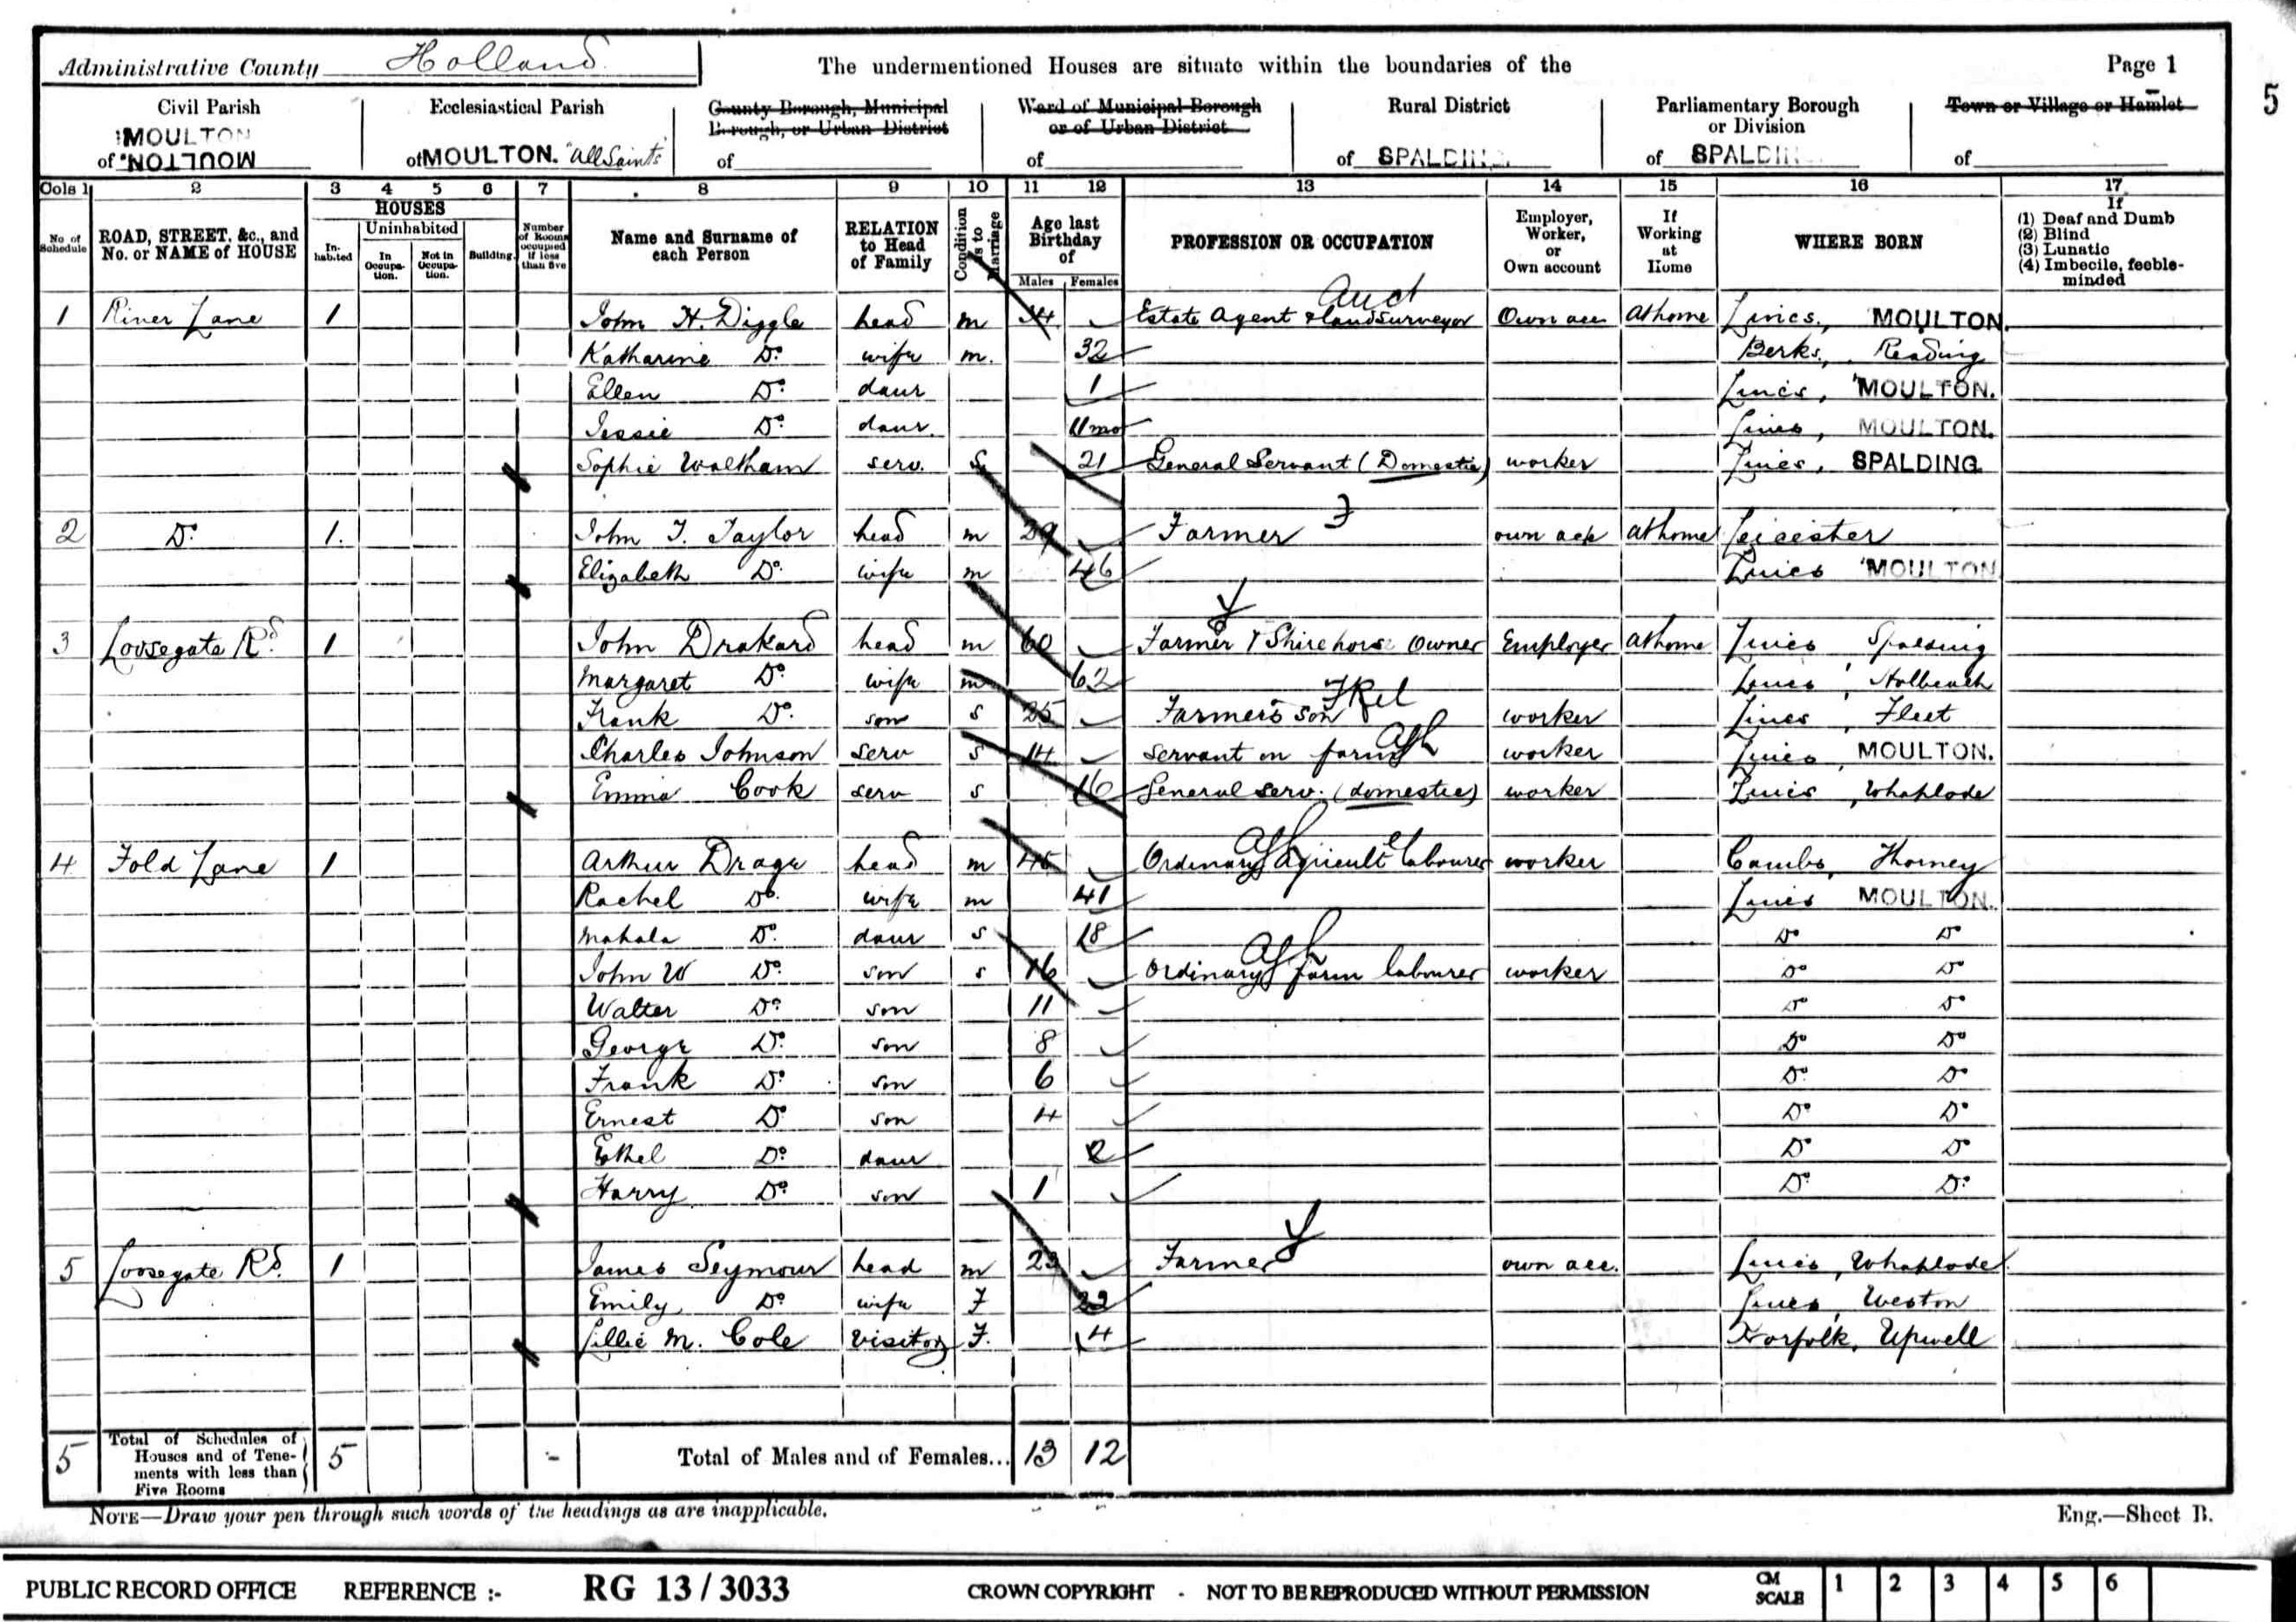 Administrative County Holland The undermentioned Houses are situate within the boundaries of the Page 1
5
Civil Parish Ecclesiastical Parish County Borough, Municipal Borough, or Urban District Ward of Municipal Borough or of Urban District Rural District Parliamentary Borough or Division Town or Village or Hamlet
MOULTON
of MOULTON. of MOULTON. "All Saints" of of of SPALDING of SPALDIN of
Cols 1 2 3 4 5 6 7 8 9 10 11 12 13 14 15 16 17
No of Schedule ROAD, STREET, &c., and No. or NAME of HOUSE HOUSES Inhabited Uninhabited In Occupation. Not in Occupation. Building. Number of Rooms occupied if less than five Name and Surname of each Person RELATION to Head of Family Condition as to Marriage Age last Birthday of Males Females PROFESSION OR OCCUPATION Employer, Worker, or Own account If Working at Home WHERE BORN If (1) Deaf and Dumb (2) Blind (3) Lunatic (4) Imbecile, feeble-minded
Auct
1 River Lane 1 John H. Diggle head m Estate Agent & land surveyor Own acc At home Lincs., MOULTON.
Katharine Do. wife m. 32 Berks., Reading
Ellen Do. daur 1 Lincs, MOULTON.
Jessie Do. daur. 11 mo Lincs, MOULTON.
Sophie Waltham serv. S 21 General Servant (Domestic) worker Lincs, SPALDING
2 Do. 1. John T. Taylor head m 29 Farmer F own acc at home Leicester
Elizabeth Do. wife m 46 Lincs MOULTON
3 Loosegate Rd. 1 John Drakard head m 60 Farmer & Shire horse owner Employer at home Lincs Spalding
Margaret Do. wife m 62 Lincs, Holbeach
Frank Do. son s 25 Farmer's son FRel worker Lincs, Fleet
Charles Johnson serv s 14 servant on farm worker Lincs, MOULTON.
Emma Cook serv s 16 General serv. (domestic) worker Lincs, Whaplode
4 Fold Lane 1 Arthur Drage head m 45 Ordinary Agricult labourer worker Cambs, Thorney
Rachel Do. wife m 41 Lincs MOULTON.
Mahala Do. daur s 18 Do Do
John W Do. son s 16 Ordinary farm labourer worker Do Do
Walter Do. son 11 Do Do
George Do. son 8 Do Do
Frank Do. son 6 Do. Do
Ernest Do son 4 Do Do
Ethel Do. daur 2 Do Do
Harry Do. son 1 Do. Do.
5 Loosegate Rd. 1 James Seymour head m 23 Farmer own acc. Lincs, Whaplode
Emily Do. wife F 22 Lincs, Weston
Lillie M. Cole visitor F. 4 Norfolk, Upwell
5 Total of Schedules of Houses and of Tenements with less than Five Rooms 5 - Total of Males and of Females... 13 12
NOTE—Draw your pen through such words of the headings as are inapplicable. Eng.—Sheet B.
PUBLIC RECORD OFFICE REFERENCE :- RG 13 / 3033 CROWN COPYRIGHT - NOT TO BE REPRODUCED WITHOUT PERMISSION CM SCALE 1 2 3 4 5 6